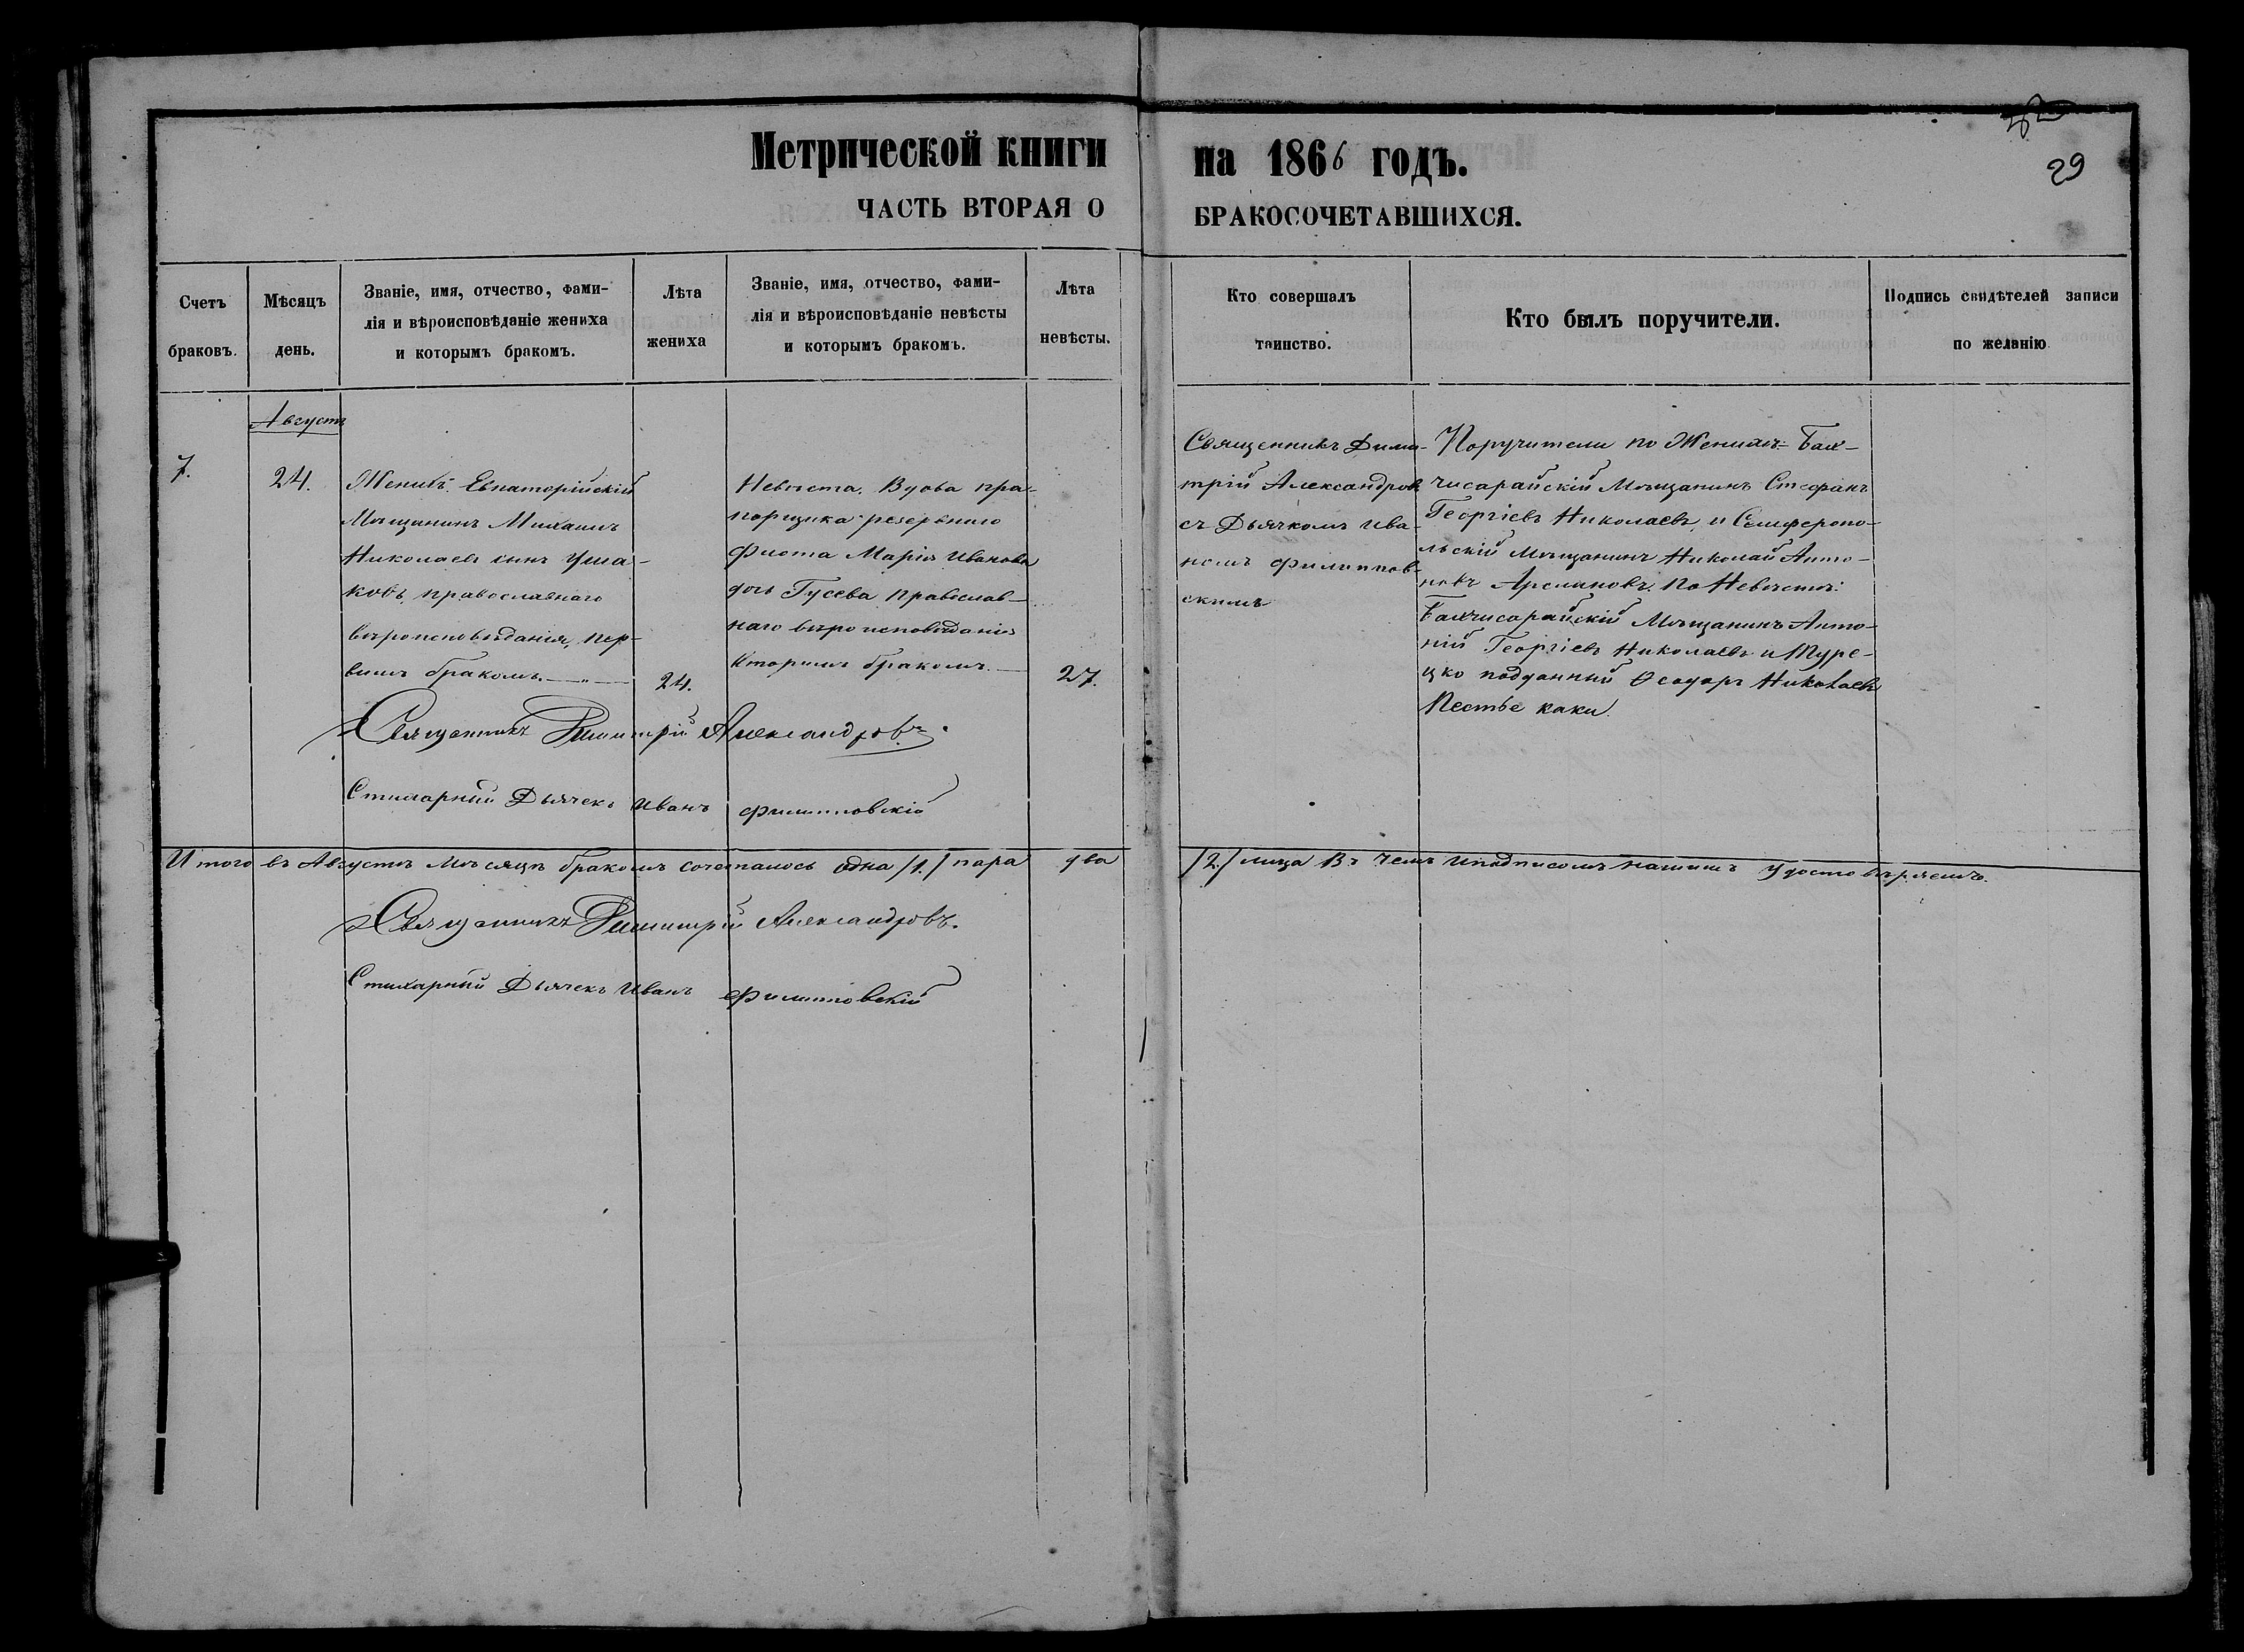 Метрической книги на 1866 годъ.
29
ЧАСТЬ ВТОРАЯ О БРАКОСОЧЕТАВШИХСЯ.
Счетъ
браковъ.
Мѣсяцъ
день.
Званіе, имя, отчество, фами-
лія и вѣроисповѣданіе жениха
и которымъ бракомъ.
Лѣта
жениха
Званіе, имя, отчество, фами-
лія и вѣроисповѣданіе невѣсты
и которымъ бракомъ.
Лѣта
невѣсты.
Кто совершалъ
таинство.
Кто былъ поручители.
Подпись свидѣтелей записи
по желанію
7.
Августъ
24.
Женихъ: Евпаторійскій
Мѣщанинъ Михаилъ
Николаевъ сынъ Уша-
ковъ, православнаго
вѣроисповѣданія, пер-
вымъ бракомъ.
24.
Невѣста. Вдова пра-
порщика резервнаго
флота Марія Иванова
дочь Гусева православ-
наго вѣроисповѣданія
вторымъ бракомъ.
27.
Священникъ Дими-
трій Александровъ
съ Дьячкомъ Ива-
номъ Филиппов-
скимъ
Поручители по Женихѣ: Бах-
чисарайскій Мѣщанинъ Стефанъ
Георгіевъ Николаевъ, и Симферопо-
льскій Мѣщанинъ Николай Анто-
новъ Арслановъ. По Невѣстѣ:
Бахчисарайскій Мѣщанинъ Анто-
ній Георгіевъ Николаевъ и Туре-
цко подданный Ѳеодоръ Николаевъ
Священникъ Димитрій Александровъ.
Стихарный Дьячекъ Иванъ Филипповскій
Итого въ Августѣ мѣсяцѣ бракомъ сочеталось одна /1./ пара два /2/ лица Въ чемъ и подписомъ нашимъ удостовѣряемъ.
Священникъ Димитрій Александровъ.
Стихарный Дьячекъ Иванъ Филипповскій